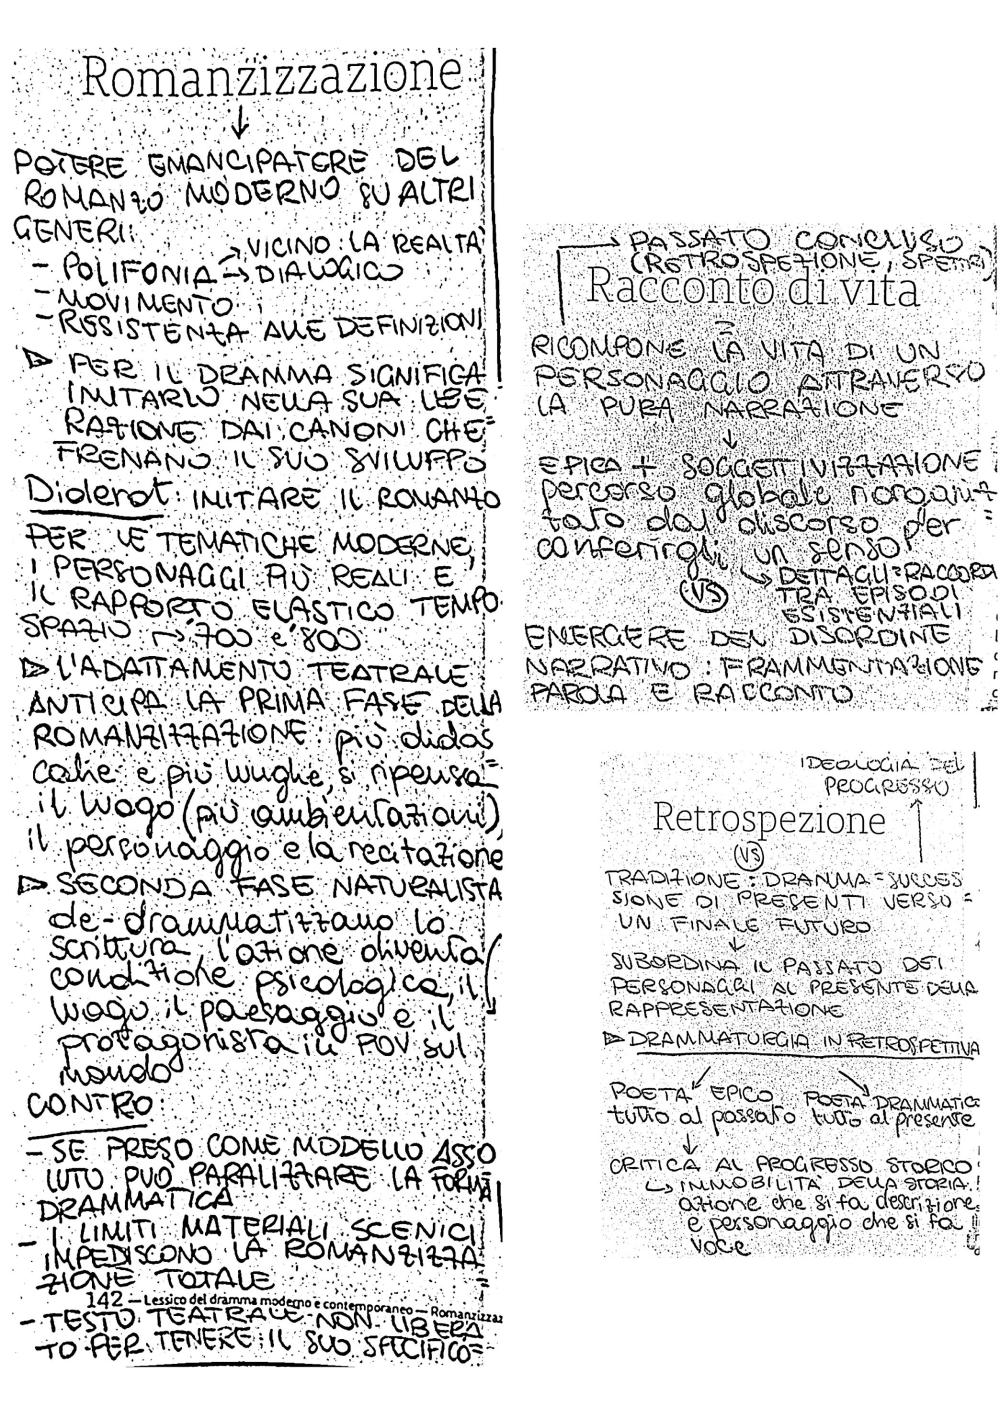 Romanzizzazione
↓
POTERE EMANCIPATORE DEL
ROMANZO MODERNO SU ALTRI
GENERI:
→ VICINO LA REALTÀ
- POLIFONIA → DIALOGICO
- MOVIMENTO
- RESISTENZA ALLE DEFINIZIONI
▷ PER IL DRAMMA SIGNIFICA
IMITARLO NELLA SUA LIBE
RAZIONE DAI CANONI CHE
FRENANO IL SUO SVILUPPO
Diderot: IMITARE IL ROMANZO
PER LE TEMATICHE MODERNE,
I PERSONAGGI PIÙ REALI E
IL RAPPORTO ELASTICO TEMPO-
SPAZIO → '700 e '800
▷ L'ADATTAMENTO TEATRALE
ANTICIPA LA PRIMA FASE DELLA
ROMANZIZZAZIONE: più didas
calie e più lunghe, si ripensa
il luogo (più ambientazioni),
il personaggio e la recitazione
▷ SECONDA FASE NATURALISTA
de-drammatizzano la
scrittura, l'azione diventa
condizione psicologica, il
luogo il paesaggio e il
protagonista in POV sul
mondo
CONTRO:
- SE PRESO COME MODELLO ASSO
LUTO PUÒ PARALIZZARE LA FORMA
DRAMMATICA
- I LIMITI MATERIALI SCENICI
IMPEDISCONO LA ROMANZIZZA
ZIONE TOTALE
142 — Lessico del dramma moderno e contemporaneo — Romanzizzaz
- TESTO TEATRALE NON LIBERA
TO PER TENERE IL SUO SPECIFICO
→ PASSATO CONCLUSO
(RETROSPEZIONE, SPETTRI)
Racconto di vita
=
RICOMPONE LA VITA DI UN
PERSONAGGIO ATTRAVERSO
LA PURA NARRAZIONE
↓
EPICA + SOGGETTIVIZZAZIONE
percorso globale riorganiz
zato dal discorso per
conferirgli un senso
→ DETTAGLI: RACCORDI
TRA EPISODI
ESISTENZIALI
VS
EMERGERE DEL DISORDINE
NARRATIVO: FRAMMENTAZIONE
PAROLA E RACCONTO
IDEOLOGIA DEL
PROGRESSO
Retrospezione
VS
TRADIZIONE: DRAMMA = SUCCES
SIONE DI PRESENTI VERSO
UN FINALE FUTURO
↓
SUBORDINA IL PASSATO DEI
PERSONAGGI AL PRESENTE DELLA
RAPPRESENTAZIONE
▷ DRAMMATURGIA IN RETROSPETTIVA
POETA EPICO POETA DRAMMATICO
tutto al passato tutto al presente
↓
CRITICA AL PROGRESSO STORICO:
↳ IMMOBILITÀ DELLA STORIA:
azione che si fa descrizione,
e personaggio che si fa
voce